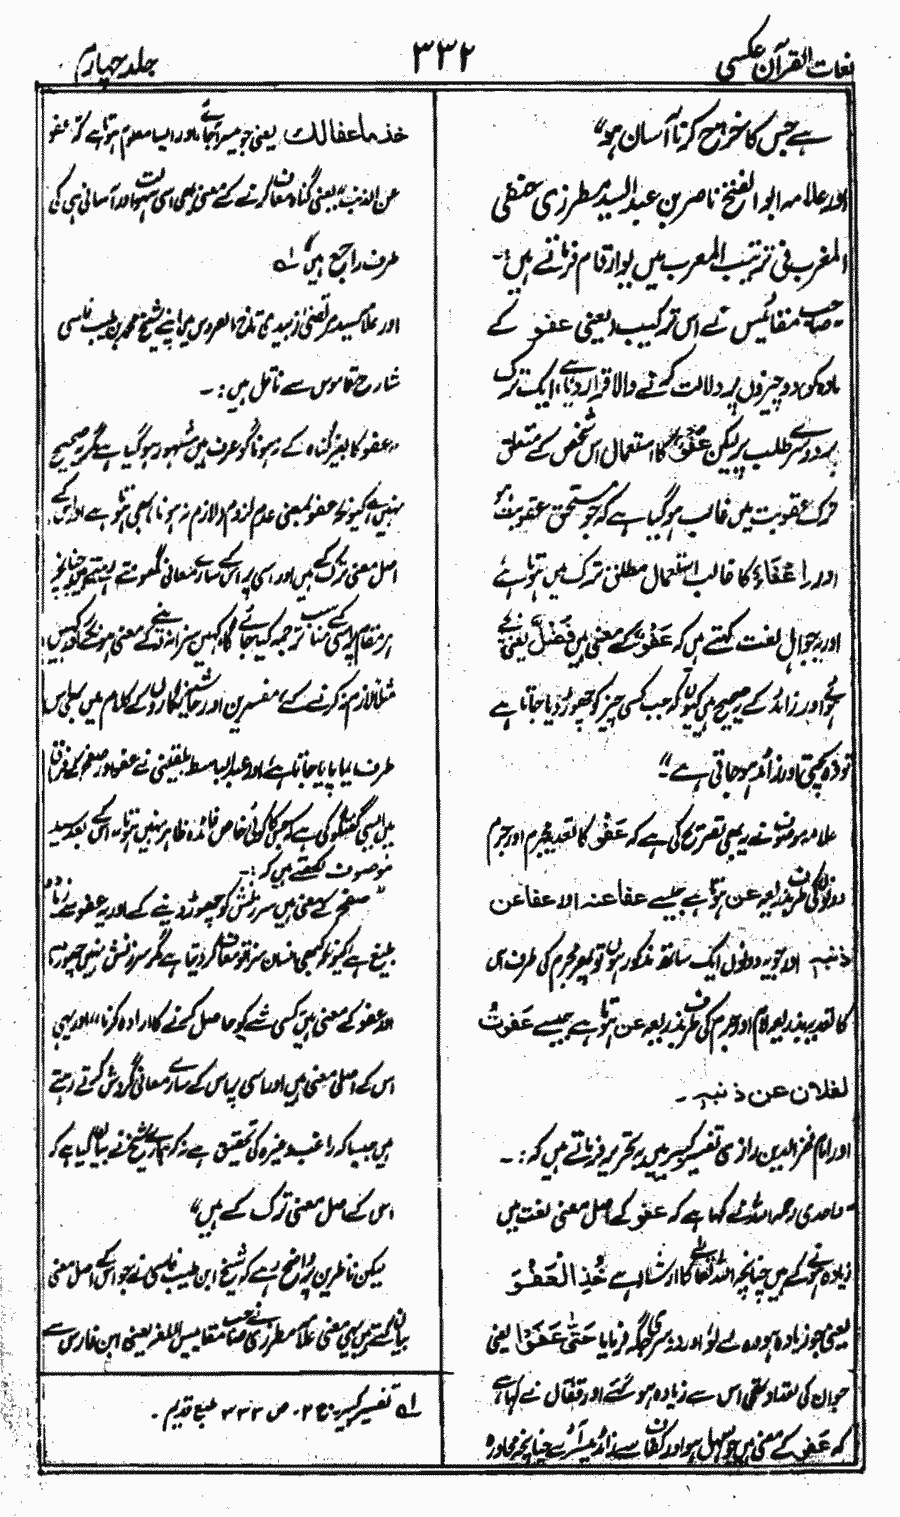 لغات القرآن عکسی
۳۳۲
جلد چہارم
ہے جس کا استخراج کرنا آسان ہو"
اور علامہ ابو الفتح ناصر بن عبد السید مطرزی حنفی
المغرب فی ترتیب المعرب میں یوں ارقام فرماتے ہیں:-
"صاحب مقائیس نے اس ترکیب (یعنی عفو کے
مادہ) کو دو چیزوں پر دلالت کرنے والا قرار دیا ہے، ایک ترک
پر دوسرے طلب پر لیکن عَفْوٌ کا استعمال اس شخص کے متعلق
ترک عقوبت میں غالب ہو گیا ہے کہ جو مستحق عقوبت ہو
اور اِعْفَاءٌ کا غالب استعمال مطلق ترک میں ہوتا ہے
اور یہ جو اہل لغت کہتے ہیں کہ عَفْوٌ کے معنی ہیں فَضَلَ یعنی بچے
ہوئے اور زائد کے یہ صحیح ہیں کیونکہ جب کسی چیز کو چھوڑ دیا جاتا ہے
تو وہ بچتی اور زائد ہو جاتی ہے"
علامہ موصوف نے یہ بھی تصریح کی ہے کہ عَفْوٌ کا تعدیہ مجرم اور جرم
دونوں کی طرف بذریعہ عن ہوتا ہے جیسے عفا عنہ اور عفا عن
ذنبہ اور جب یہ دونوں ایک ساتھ مذکور ہوں تو پھر مجرم کی طرف ہی
کا تعدیہ بذریعہ لام اور جرم کی طرف بذریعہ عن ہوتا ہے جیسے عَفَوتُ
لفلان عن ذنبہ ۔
اور امام فخر الدین رازی تفسیر کبیر میں یہ تحریر فرماتے ہیں کہ:۔
"واحدی رحمہ اللہ نے کہا ہے کہ عفو کے اصل معنی لغت میں
زیادہ ہونے کے ہیں چنانچہ اللہ تعالیٰ کا ارشاد ہے خُذِ الْعَفْوَ
یعنی جو زیادہ ہو وہ لے لو اور دوسری جگہ فرمایا حَتّٰی عَفَوْا یعنی
جو ان کی تعداد تھی اس سے زیادہ ہو گئے اور قفال نے کہا ہے
کہ عفو کے معنی ہیں جو سہل ہو اور کفاف سے زائد میسر آئے چنانچہ محاورہ
خذ ما عفا لک یعنی جو میسر آ جائے، اور ایسا معلوم ہوتا ہے کہ عفو
عن الذنب یعنی گناہ معاف کرنے کے معنی بھی اسی سہولت اور آسانی ہی کی
طرف راجع ہیں" لہ
اور علامہ سید مرتضیٰ زبیدی تاج العروس میں اپنے شیخ محمد بن طیب فاسی
شارح قاموس سے ناقل ہیں:۔
"عفو کا بغیر گناہ کے نہ ہونا گو عرف میں مشہور ہو گیا ہے مگر یہ صحیح
نہیں ہے کیونکہ عفو بمعنی عدم لزوم (لازم نہ ہونا) بھی آتا ہے اور اس کے
اصل معنی ترک کے ہیں اور اسی پر اس کے سارے معانی گھومتے رہتے ہیں چنانچہ
ہر مقام پر اسی کے مناسب ترجمہ کیا جائے گا، کہیں سزا نہ دینے کے معنی ہوں گے کہیں
مثلاً لازم نہ کرنے کے مفسرین اور حاشیہ نگاروں کے کلام میں بھی اس
طرف ایما پایا جاتا ہے، اور عبد الباسط بلقینی نے عفو اور صفح کے فرق
میں ایسی گفتگو کی ہے کہ جس کا کوئی خاص فائدہ ظاہر نہیں ہوتا، اس کے بعد سید
موصوف لکھتے ہیں کہ:۔
صفح کے معنی ہیں سرزنش کو چھوڑ دینے کے اور یہ عفو سے زیادہ
بلیغ ہے کیونکہ کبھی انسان سزا تو معاف کر دیتا ہے مگر سرزنش نہیں چھوڑتا
اور عفو کے معنی ہیں کسی شے کو حاصل کرنے کا ارادہ کرنا، اور یہی
اس کے اصلی معنی ہیں اور اسی پر اس کے سارے معانی گردش کرتے رہتے
ہیں جیسا کہ راغب وغیرہ کی تحقیق ہے نہ کہ ہمارے شیخ نے بیان کیا ہے کہ
اس کے اصل معنی ترک کے ہیں"
لیکن ناظرین پر واضح رہے کہ شیخ ابن طیب فاسی نے جو اس کے اصل معنی
بیان کئے ہیں یہی معنی علامہ مطرزی نے صاحب مقاییس اللغۃ یعنی ابن فارس سے
لہ تفسیر کبیر ج ۲، ص ۳۳۲ طبع قدیم ۔